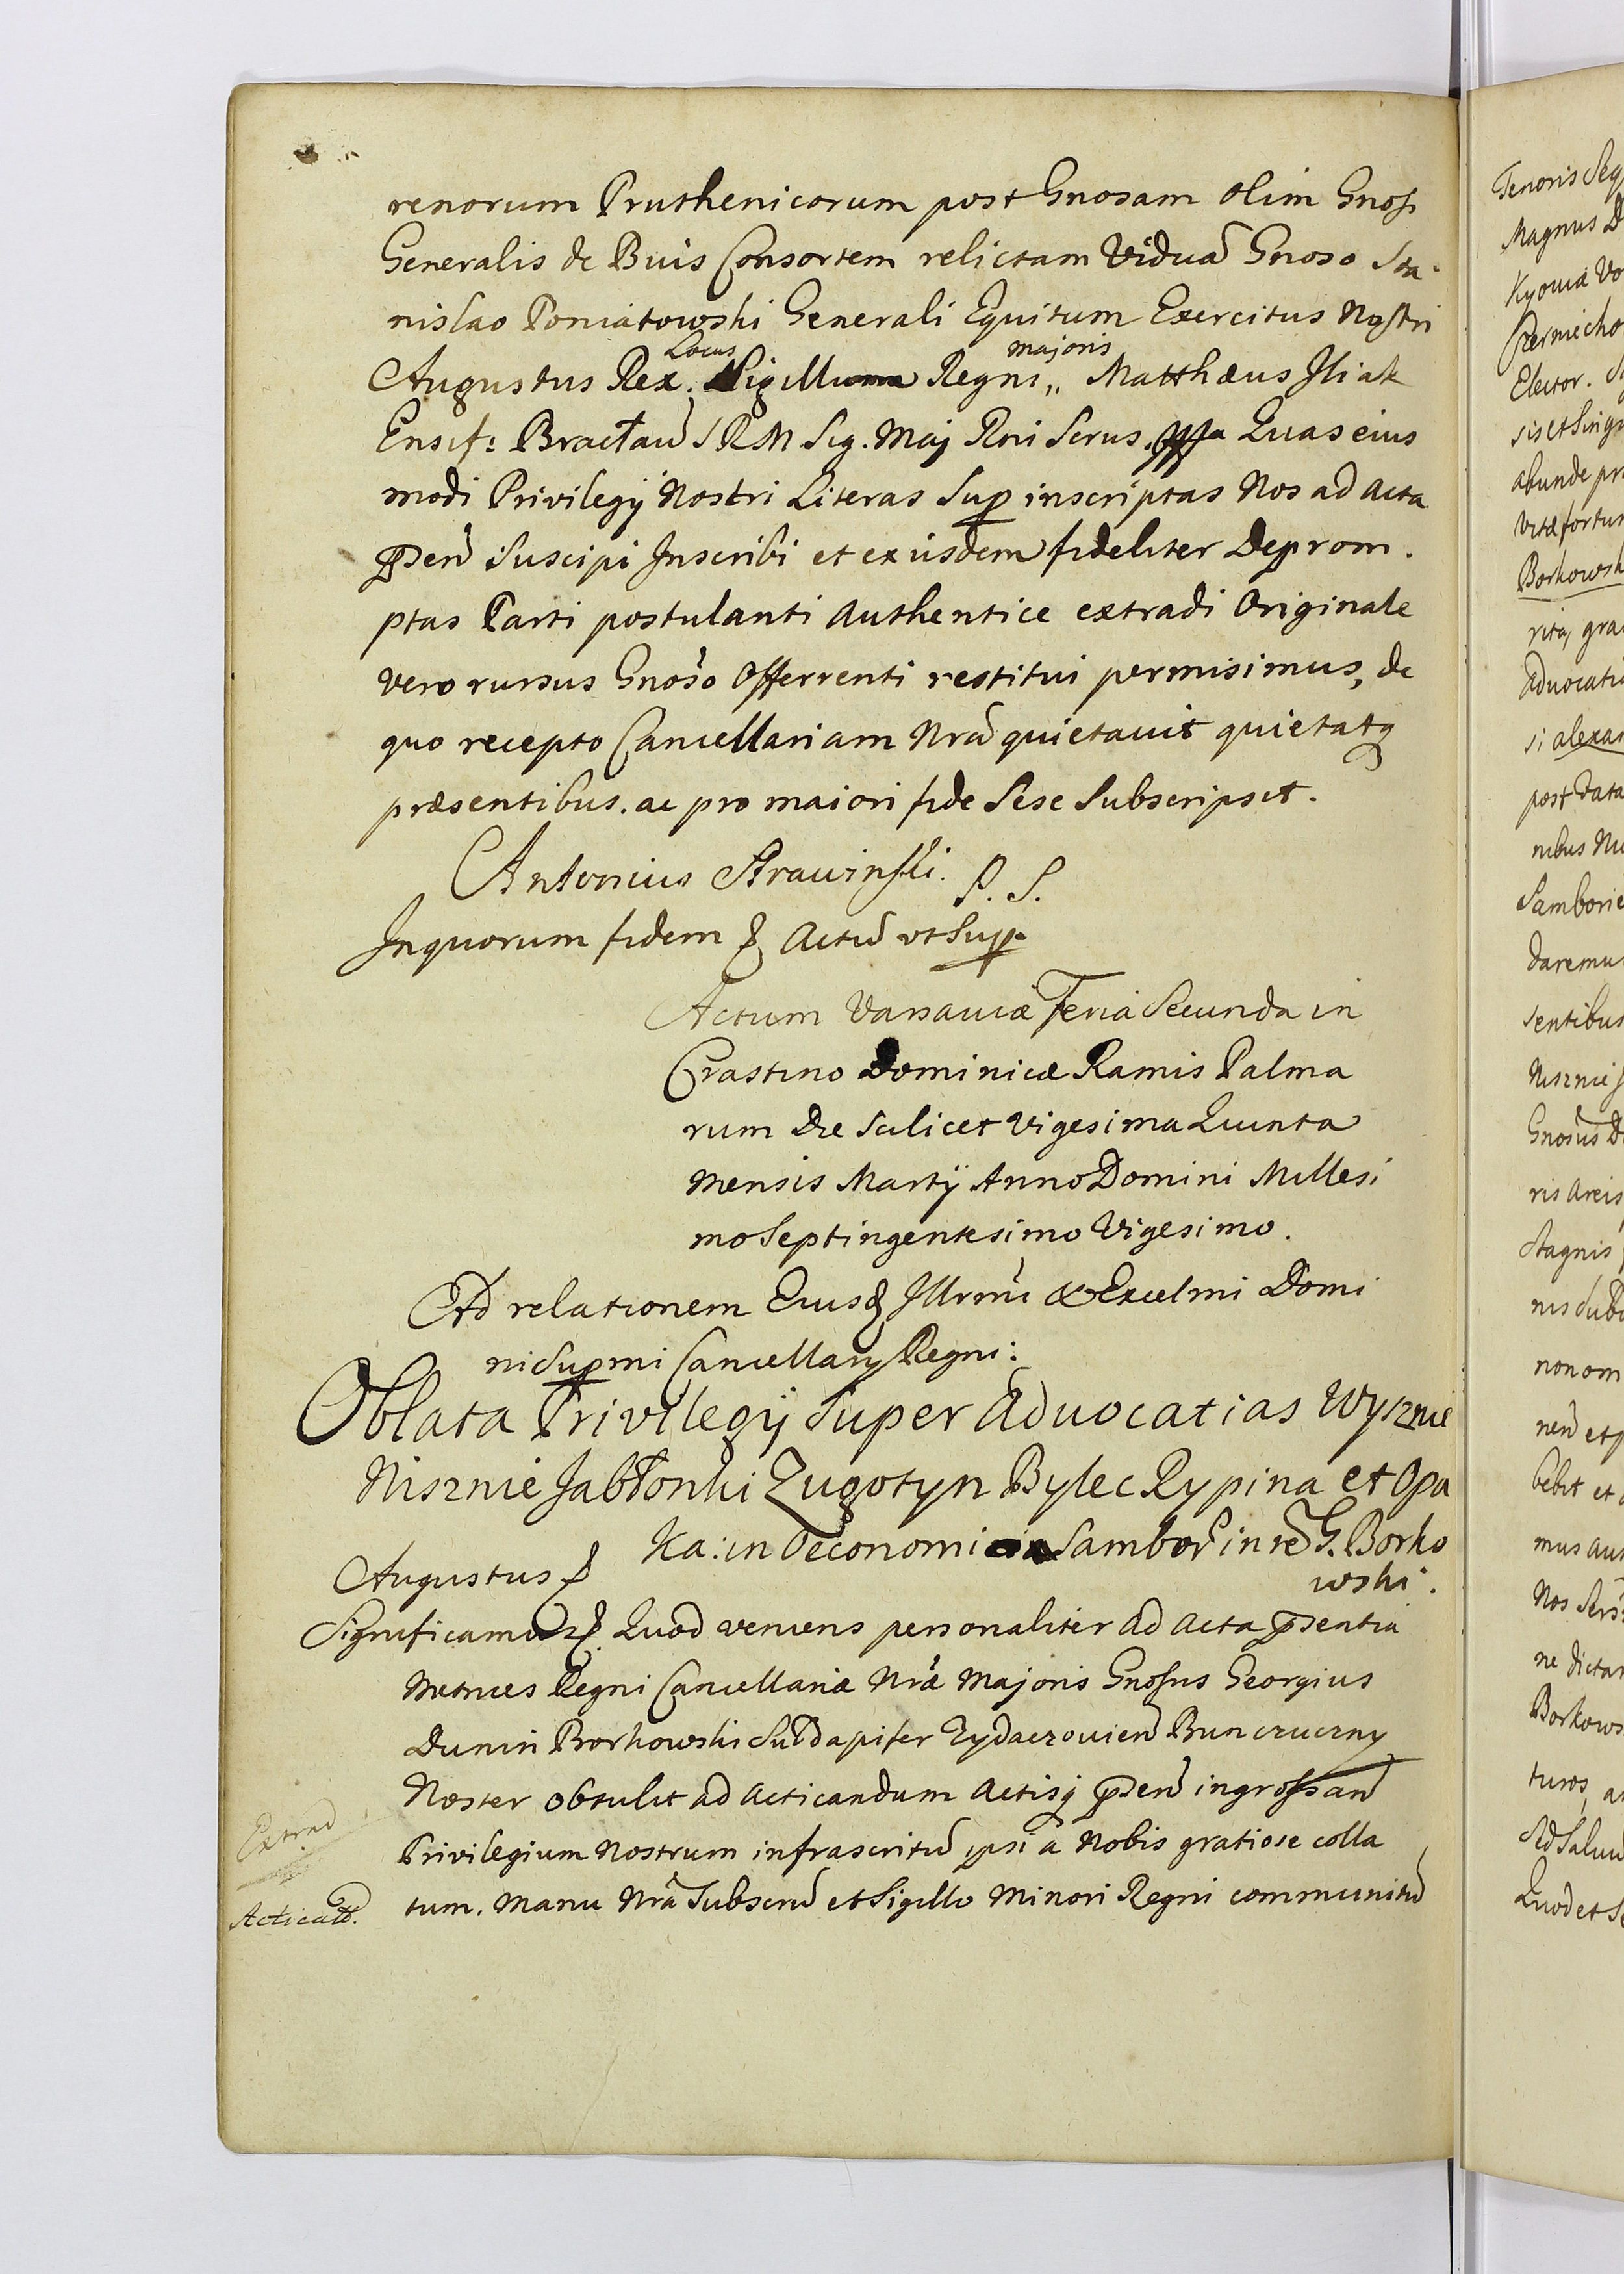 renorum Pruthenicorum post Gnosam olim Gnosi
Generalis de Buis Consortem relictam Viduā Gnoso Sta-
nislao Poniatowski Generali Equitum Exercitus Nostri
Augustus Rex. Locus Sigilli Majoris Regni,, Matthæus Iliak
Ensif: Bracłaū S R M Sig. Maj Rni Scrus. Quas eius
modi Privilegij Nostri Literas Sup inscriptas Nos ad acta
pñsen Suscipi Inscribi et ex iisdem fideliter Deprom.
ptas Parti postulanti Authentice extradi Originale
vero rursus Gnoso Offerrenti restitui permisimus, de
quo recepto Cancellariam Nrā quietavit quietatq
præsentibus. ac pro maiori fide Sese Subscripsit.
Antonius Strawinski. P. S.
In quorum fidem & Actū ut Sup.
Actum Varsaviæ Feria Secunda in
Crastino Dominicæ Ramis Palma
rum Die Scilicet Vigesima Quinta
Mensis Martij Anno Domini Millesi
mo Septingentesimo Vigesimo.
Ad relationem Eiusd Illrmi & Excelmi Domi
ni Supmi Cancellarij Regni:
Oblata Privilegij Super Advocatias Wysznie
Nisznie Jabłonki Zugotyn Bylec Rypina et Opa
ka: in Oeconomia Sambor in rē G. Borko
wski.
Augustus &
Significamus &. Quod veniens personaliter ad Acta psentia
Metrices Regni Cancellariæ Nræ Majoris Gnosus Georgius
Dunin Borkowski Subdapifer Zydaczovien Bunczuczny
Noster obtulit ad Acticandum Actisq psen ingrossan
Extrad
Privilegium Nostrum infrascritū ipsi a Nobis gratiose colla
Acticatt.
tum. Manu Nrā Subscrū et Sigillo Minori Regni communitū
Tenoris Seq
Magnus D
Kyoviæ Vo
Czerniecho
Elector.
sis et Singu
abunde pr
vitæ fortun
Borkowsk
rita, gra
advocatia
si alexan
post data
nibus Nu
Samborie
daremu
sentibus
Nisznie J
Gnosus D
ris areis
Stagnis
nis Subd
non om
nen et p
bebit et
mus aut
Nos Sers
ne dictar
Borkows
turos, a
Ad Salvu
Quod et Se